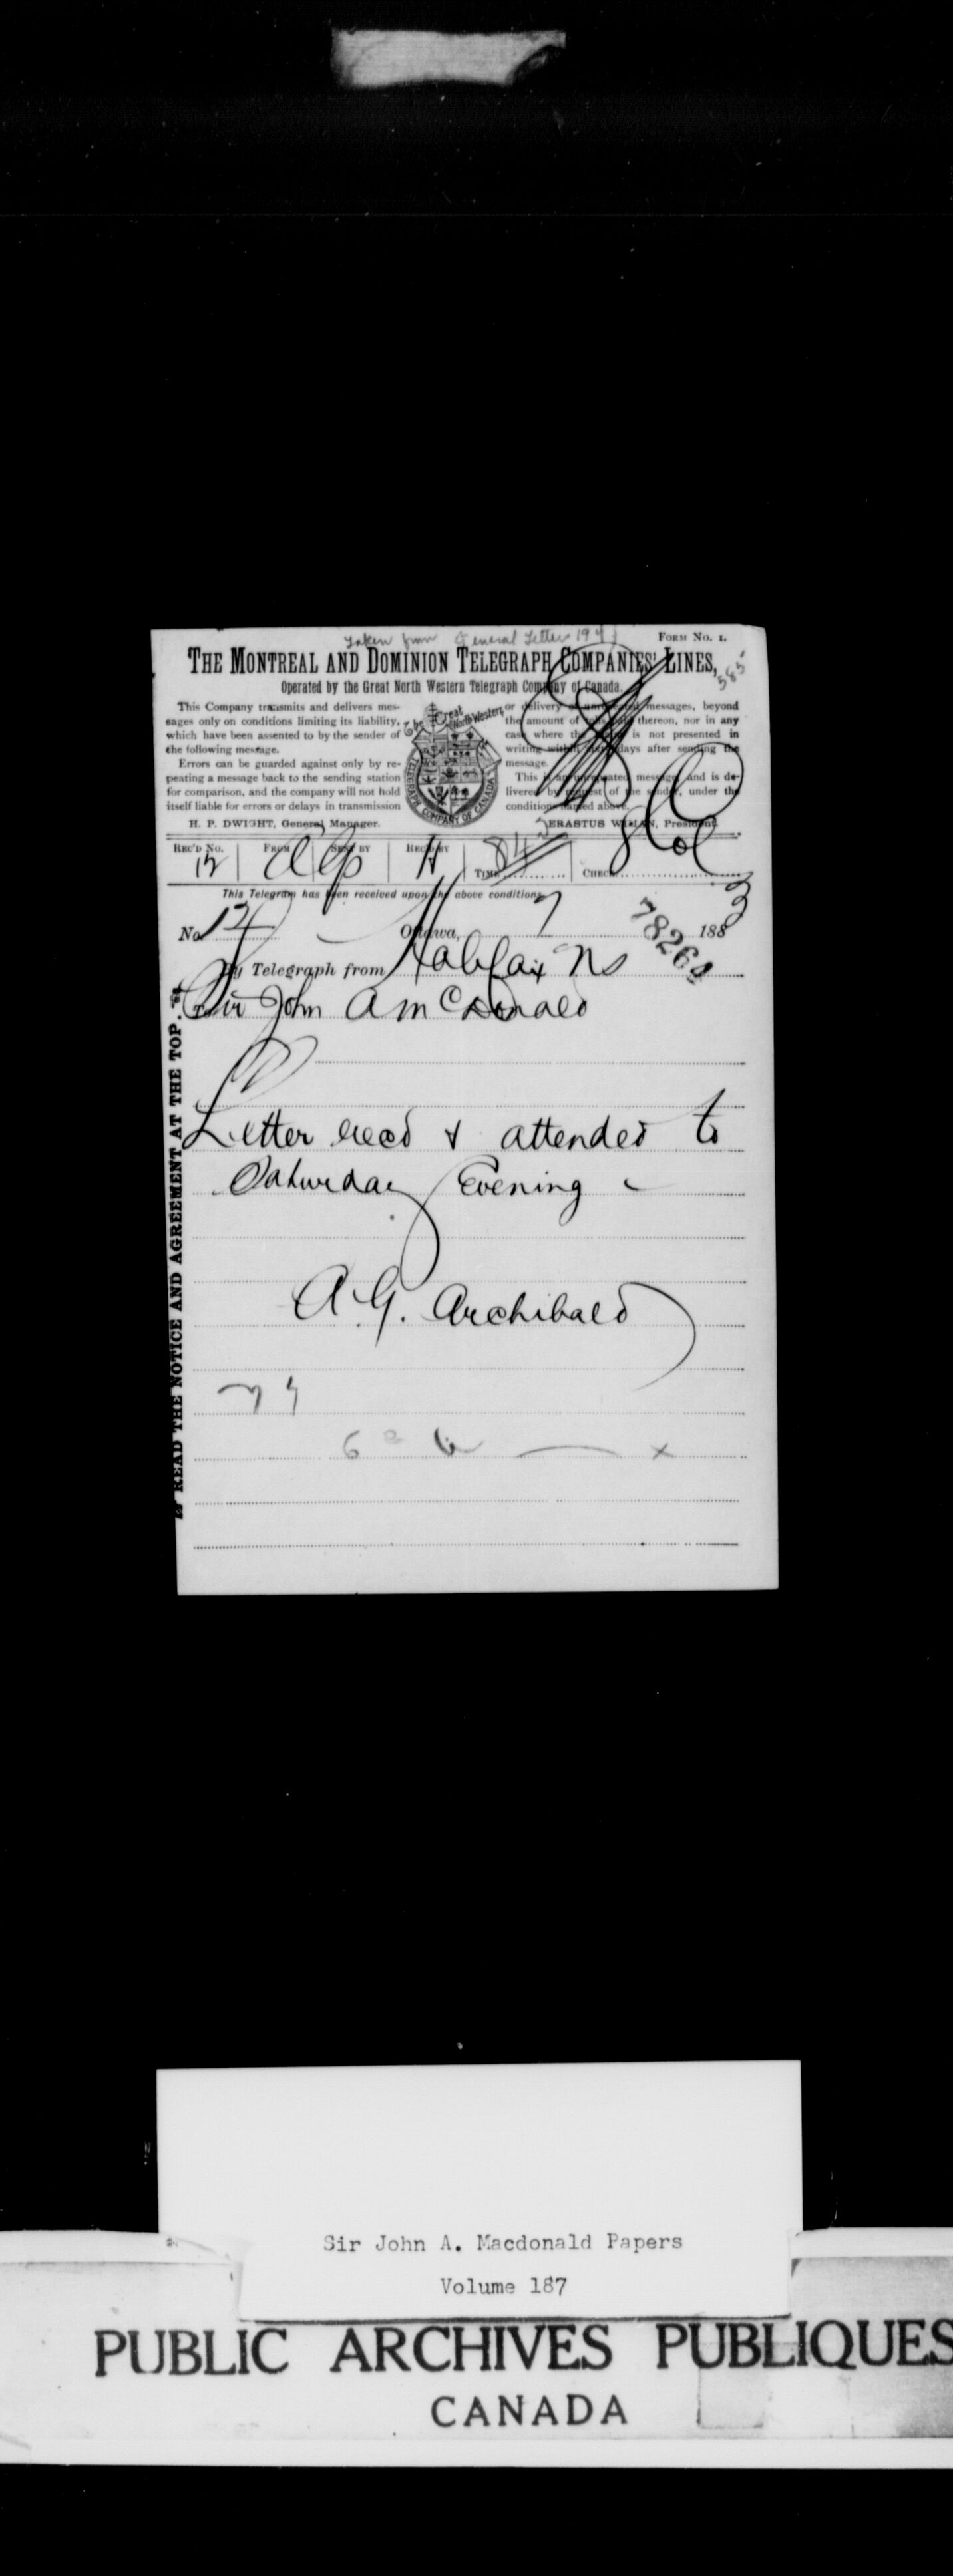 Taken from General Letters
FORM No. 1.
THE MONTREAL AND DOMINION TELEGRAPH COMPANIES' LINES,
585
Operated by the Great North Western Telegraph Company of Canada.
This Company transmits and delivers mes-
sages only on conditions limiting its liability,
which have been assented to by the sender of
the following message.
Errors can be guarded against only by re-
peating a message back to the sending station
for comparison, and the company will not hold
itself liable for errors or delays in transmission
H. P. DWIGHT, General Manager.
The Great North Western
TELEGRAPH COMPANY OF CANADA
or delivery of unrepeated messages, beyond
the amount of tolls paid thereon, nor in any
case where the claim is not presented in
writing within sixty days after sending the
message.
This is an unrepeated message and is de-
livered by request of the sender, under the
conditions named above.
ERASTUS WIMAN, President.
REC'D No. FROM SENT BY REC'D BY TIME CHECK
12 H 84
This Telegram has been received upon the above conditions
No. 12 Ottawa, 7 1883
78264
By Telegraph from Halifax NS
Sir John A McDonald
Letter recd & attended to
Saturday Evening
A. G. Archibald
READ THE NOTICE AND AGREEMENT AT THE TOP.
Sir John A. Macdonald Papers
Volume 187
PUBLIC ARCHIVES PUBLIQUES
CANADA